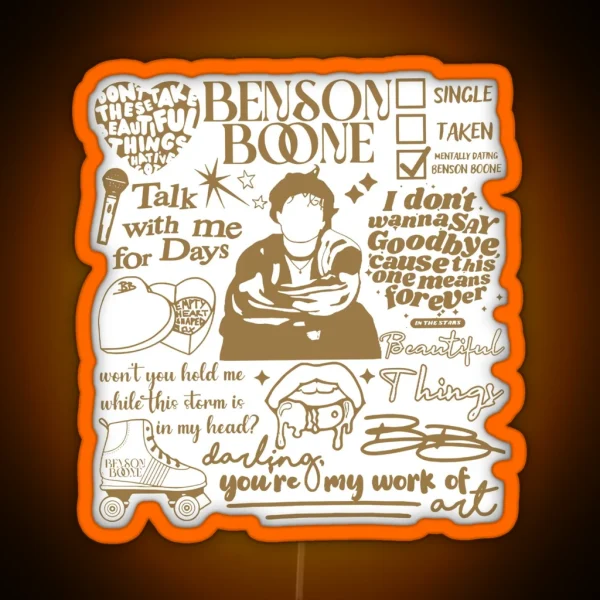 DON'T
THESE TAKE
BEAUTIFUL
THINGS
THAT I'VE
GOT
BENSON
BOONE
SINGLE
TAKEN
MENTALLY DATING
BENSON BOONE
Talk
with me
for Days
I don't
wanna SAY
Goodbye,
'cause this
one means
forever
IN THE STARS
BB
EMPTY
HEART
SHAPED
BOX
Beautiful
Things
won't you hold me
while this storm is
in my head?
BB
BENSON
BOONE
darling,
you're my work of
art